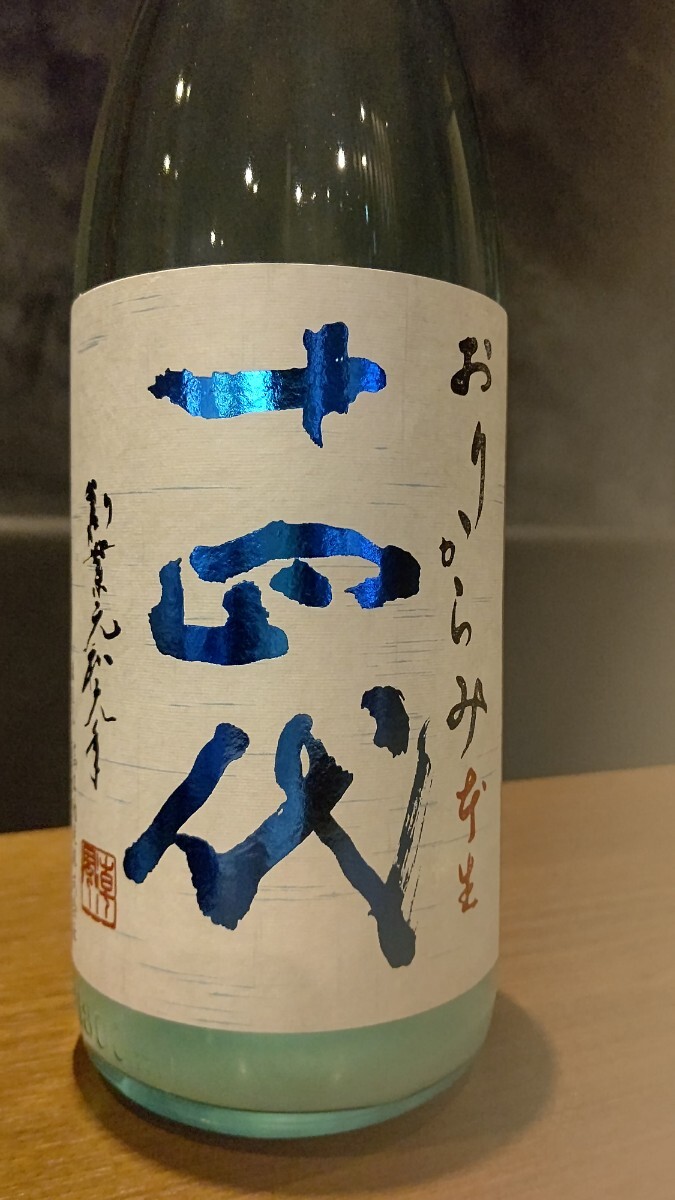 おりからみ本生
十四代
創業元和元年